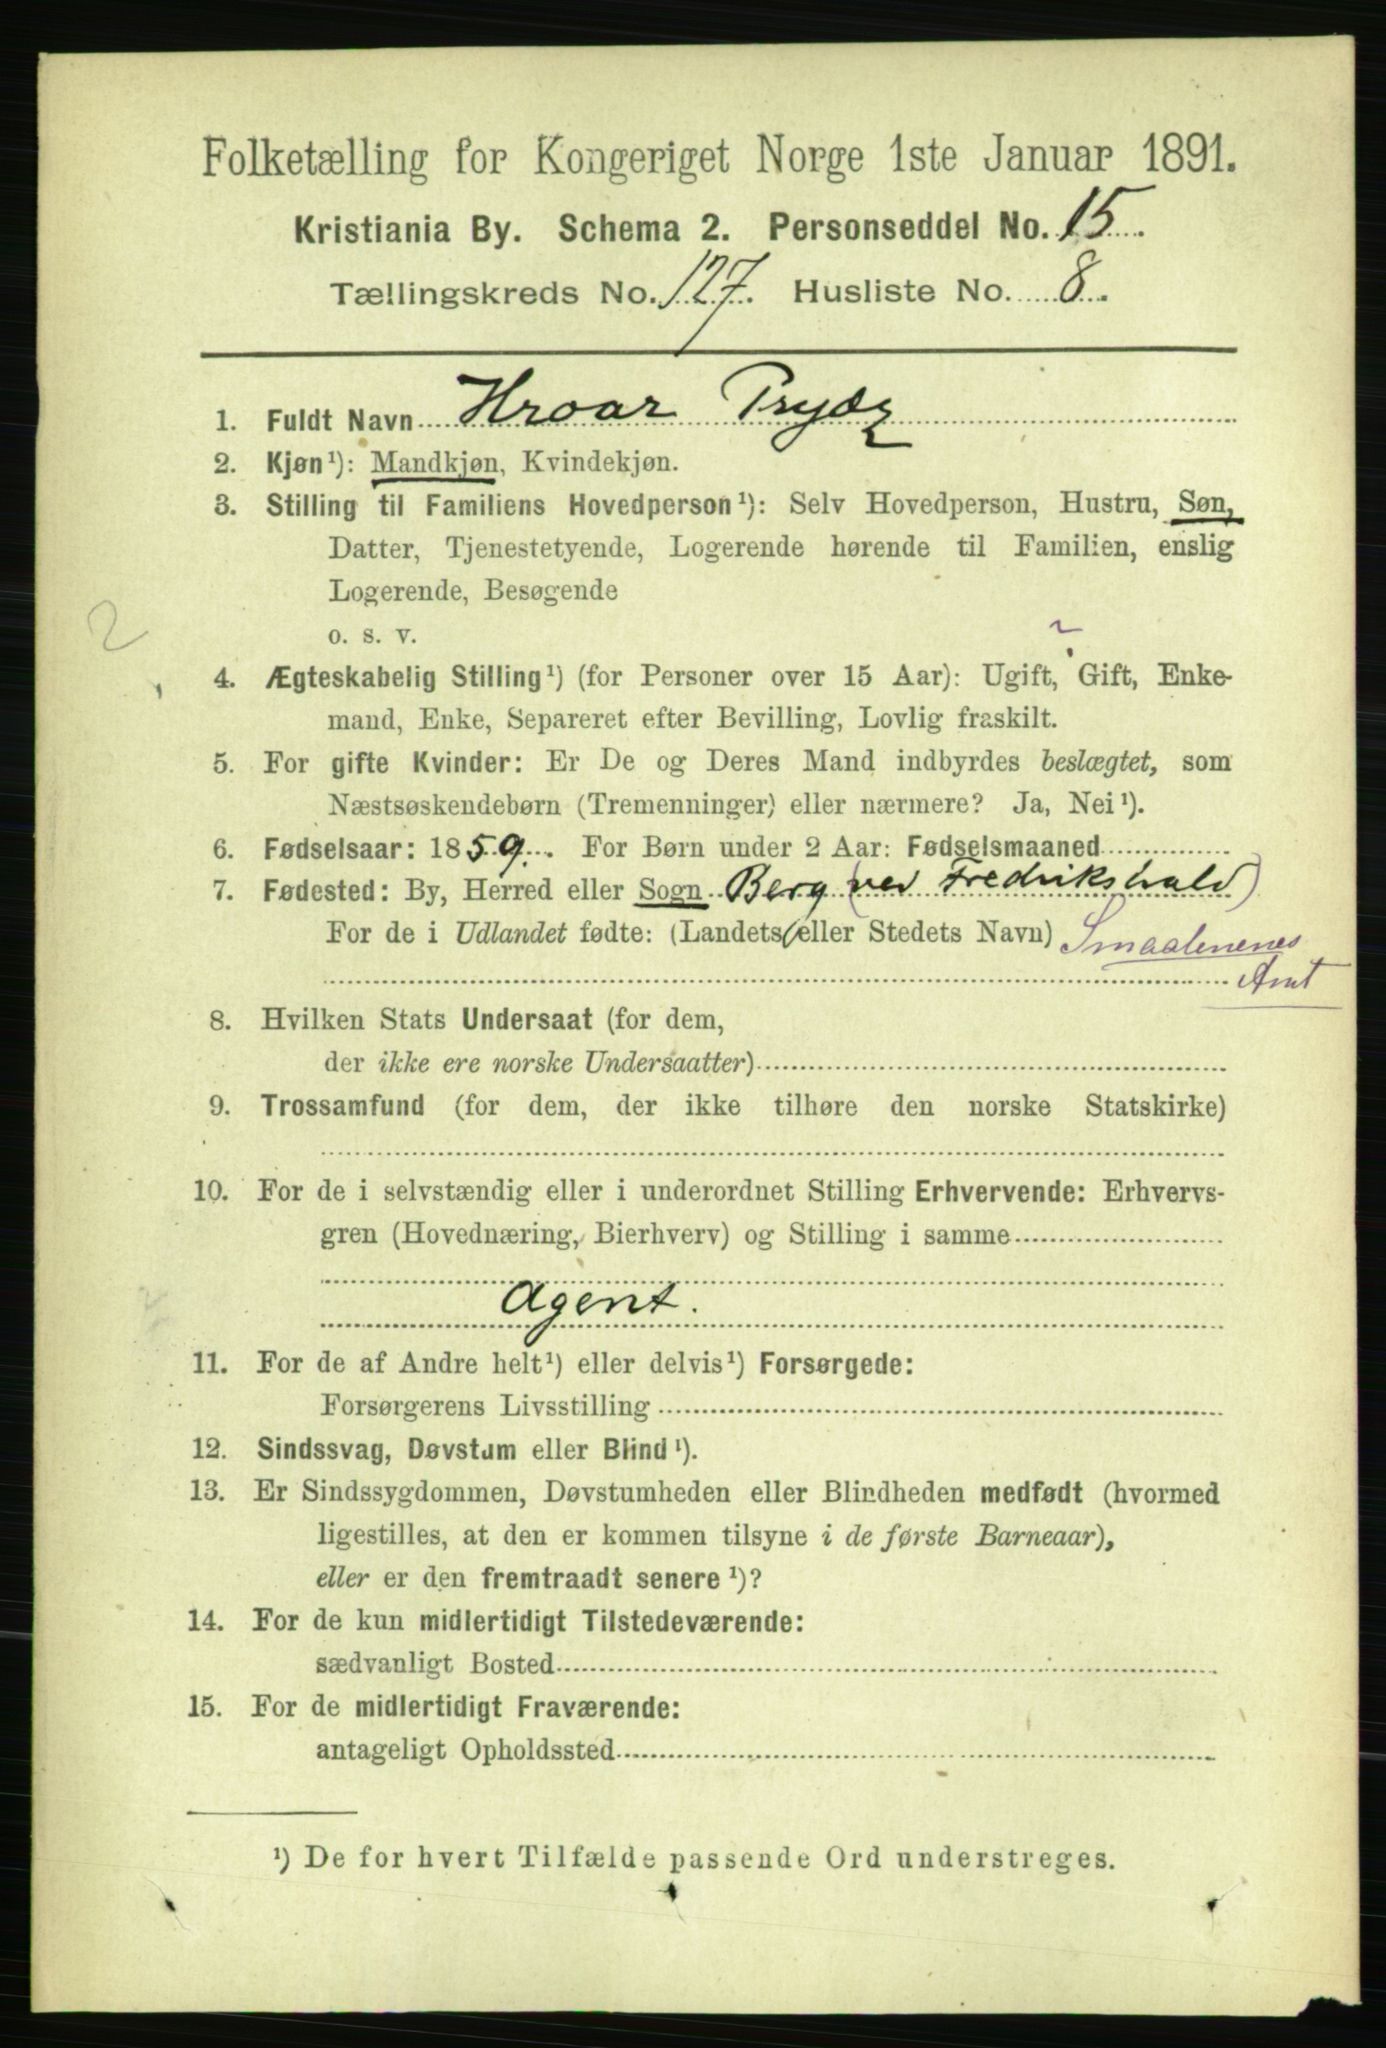 Folketælling for Kongeriget Norge 1ste Januar 1891.
Kristiania By. Schema 2. Personseddel No. 15
Tællingskreds No. 127. Husliste No. 8.
1. Fuldt Navn Hroar Prydz
2. Kjøn¹): Mandkjøn, Kvindekjøn.
3. Stilling til Familiens Hovedperson¹): Selv Hovedperson, Hustru, Søn,
Datter, Tjenestetyende, Logerende hørende til Familien, enslig
Logerende, Besøgende
o. s. v.
2
4. Ægteskabelig Stilling¹) (for Personer over 15 Aar): Ugift, Gift, Enke-
mand, Enke, Separeret efter Bevilling, Lovlig fraskilt.
5. For gifte Kvinder: Er De og Deres Mand indbyrdes beslægtet, som
Næstsøskendebørn (Tremenninger) eller nærmere? Ja, Nei¹).
6. Fødselsaar: 1859. For Børn under 2 Aar: Fødselsmaaned
7. Fødested: By, Herred eller Sogn Berg (ved Fredrikshald)
For de i Udlandet fødte: (Landets eller Stedets Navn) Smaalenenes
Amt
8. Hvilken Stats Undersaat (for dem,
der ikke ere norske Undersaatter)
9. Trossamfund (for dem, der ikke tilhøre den norske Statskirke)
10. For de i selvstændig eller i underordnet Stilling Erhvervende: Erhvervs-
gren (Hovednæring, Bierhverv) og Stilling i samme
Agent.
11. For de af Andre helt¹) eller delvis¹) Forsørgede:
Forsørgerens Livsstilling
12. Sindssvag, Døvstum eller Blind¹).
13. Er Sindssygdommen, Døvstumheden eller Blindheden medfødt (hvormed
ligestilles, at den er kommen tilsyne i de første Barneaar),
eller er den fremtraadt senere¹)?
14. For de kun midlertidigt Tilstedeværende:
sædvanligt Bosted
15. For de midlertidigt Fraværende:
antageligt Opholdssted
¹) De for hvert Tilfælde passende Ord understreges.